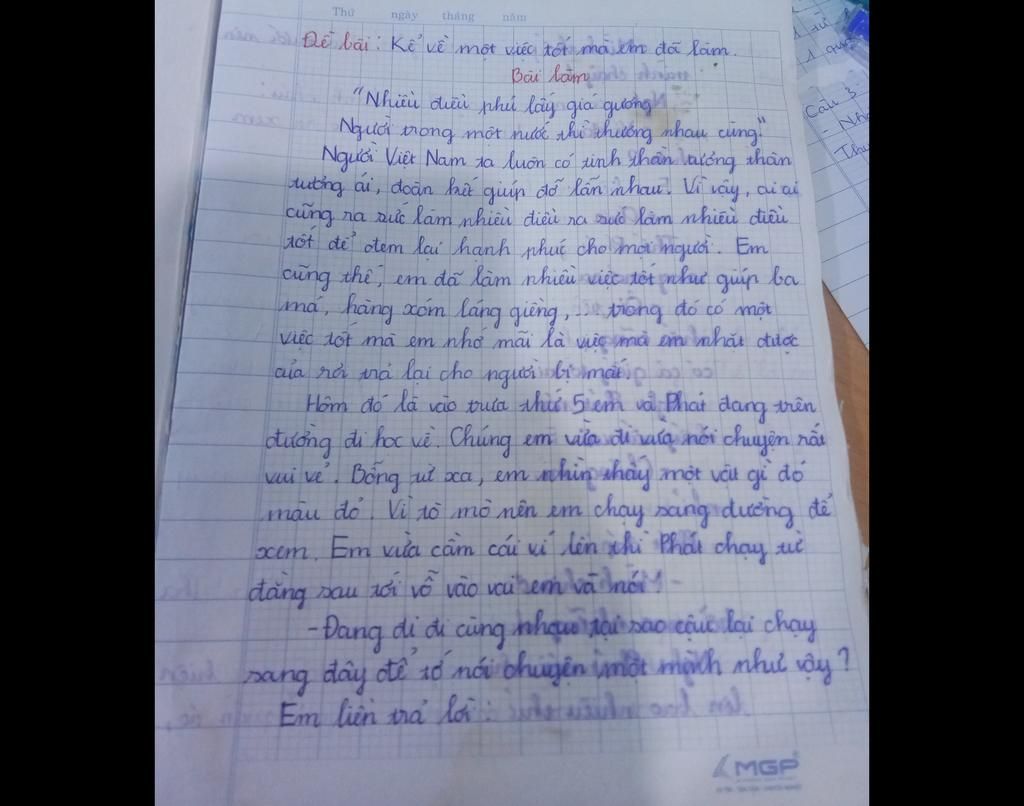 Thứ ngày tháng năm
Đề bài: Kể về một việc tốt mà em đã làm.
Bài làm
"Nhiễu điều phủ lấy giá gương
Người trong một nước thì thương nhau cùng."
Người Việt Nam ta luôn có tinh thần tương thân
tương ái, đoàn kết giúp đỡ lẫn nhau. Vì vậy, ai ai
cũng ra sức làm nhiều điều ra sức làm nhiều điều
tốt để đem lại hạnh phúc cho mọi người. Em
cũng thế, em đã làm nhiều việc tốt như giúp ba
má, hàng xóm láng giềng, ... trong đó có một
việc tốt mà em nhớ mãi là việc mà em nhặt được
của rơi trả lại cho người bị mất.
Hôm đó là vào trưa thứ 5 em và Phát đang trên
đường đi học về. Chúng em vừa đi vừa nói chuyện rất
vui vẻ. Bỗng từ xa, em nhìn thấy một vật gì đó
màu đỏ. Vì tò mò nên em chạy sang đường để
xem. Em vừa cầm cái ví lên thì Phát chạy từ
đằng sau tới vỗ vào vai em và nói:
- Đang đi đi cùng nhau tại sao cậu lại chạy
sang đây để tớ nói chuyện một mình như vậy?
Em liền trả lời:
MGP
Câu 3: